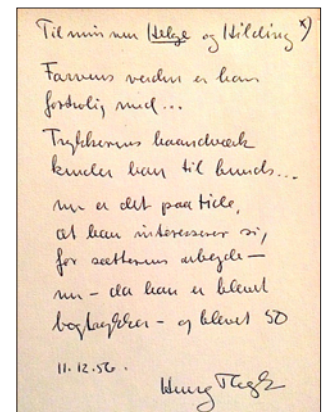 Til min ven Helge og Hilding *)
Farvens verden er han
fortrolig med...
Trykkerens haandværk
kender han til bunds...
nu er det paa tide,
at han interesserer sig
for sætterens arbejde —
nu - da han er blevet
bogtrykker - og blevet 50
11.12.56.
Henry